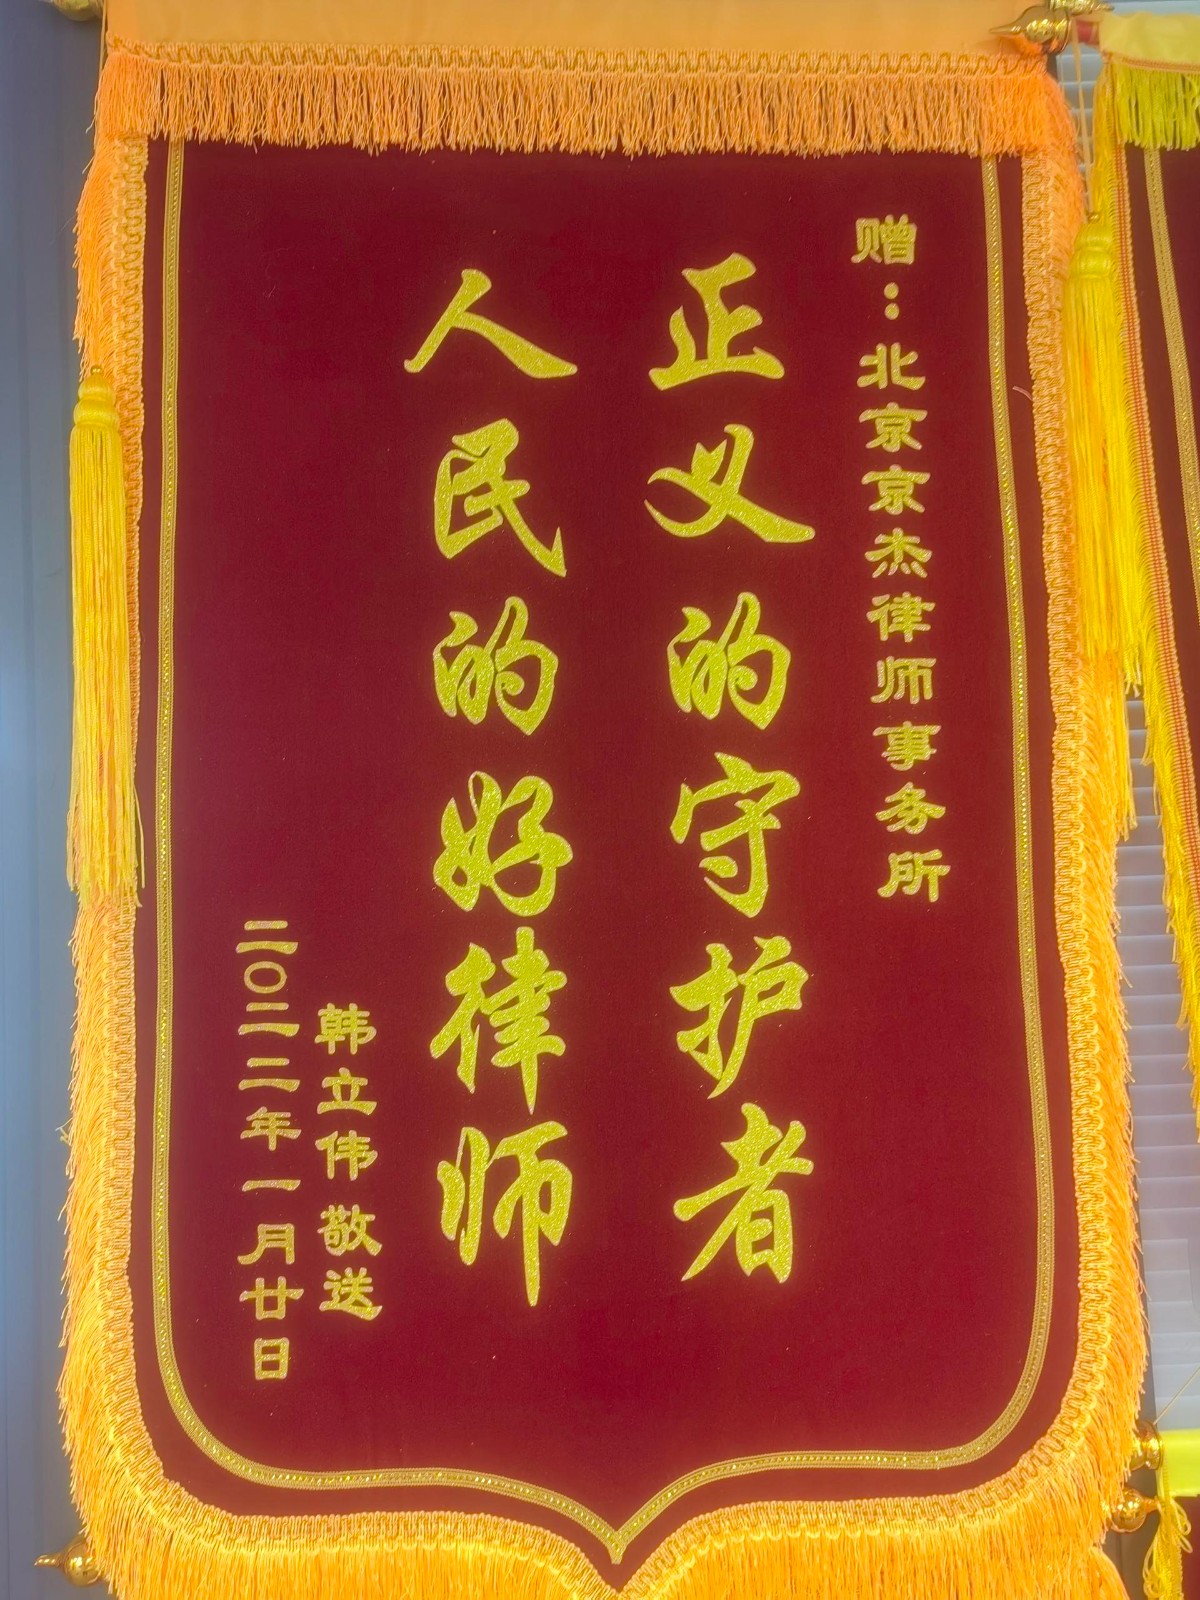 赠：北京京杰律师事务所
正义的守护者
人民的好律师
韩立伟敬送
二〇二二年一月廿日